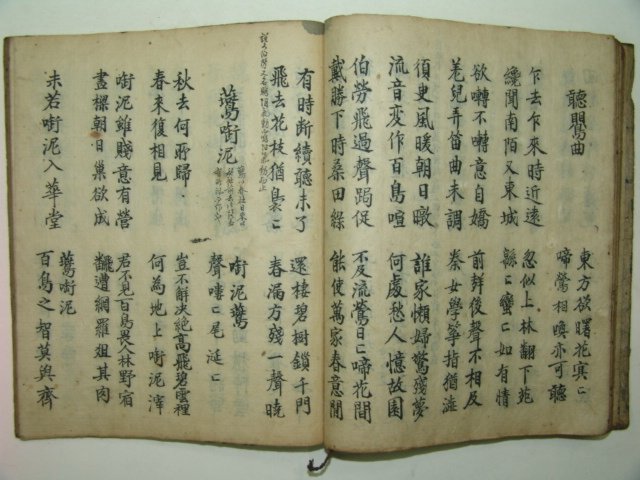 聽鸎曲
東方欲曙花冥〻
啼鶯相喚亦可聽
乍去乍來時近遠
纔聞南陌又東城
忽似上林翻下苑
緜〻蠻〻如有情
欲囀不囀意自嬌
羌兒弄笛曲未調
前聲後聲不相及
秦女學箏指猶澁
須臾風暖朝日暾
流音變作百鳥喧
誰家懶婦驚殘夢
何處愁人憶故園
伯勞飛過聲跼促
戴勝下時桑田綠
不及流鶯日〻啼花間
能使萬家春意閒
有時断續聽未了
飛去花枝猶裊〻
還棲碧樹鎖千門
春漏方殘一聲曉
鷰啣泥
啣泥鷰
聲嘍〻尾涎〻
秋去何所歸
春來復相見
豈不解决絶高飛碧雲裡
何為地上啣泥滓
啣泥雖賤意有營
畫樑朝日巢欲成
君不見百鳥畏人林野宿
翻遭網羅俎其肉
未若啣泥入華堂
鷰啣泥
百鳥之智莫與齊